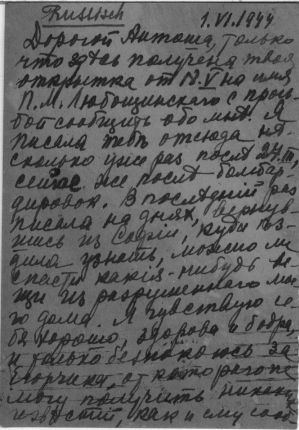 Russisch
1.VI.1944
Дорогой Антоша, только
что здесь получена твоя
открытка от 18.V на имя
П.М. Любощинскаго с прось-
бой сообщить обо мнѣ. Я
писала тебѣ отсюда нѣ-
сколько уже раз послѣ 24.III,
сейчас же послѣ бомбар-
дировок. В послѣдний раз
писала на днях, вернув-
шись из Софіи, куда ѣз-
дила узнать, можно ли
спасти какія-нибудь ве-
щи из разрушеннаго мое-
го дома. Я чувствую се-
бя хорошо, здорова и бодра,
и только безпокоюсь за
от котораго не
могу получить никаких
извѣстий, как и ему сооб